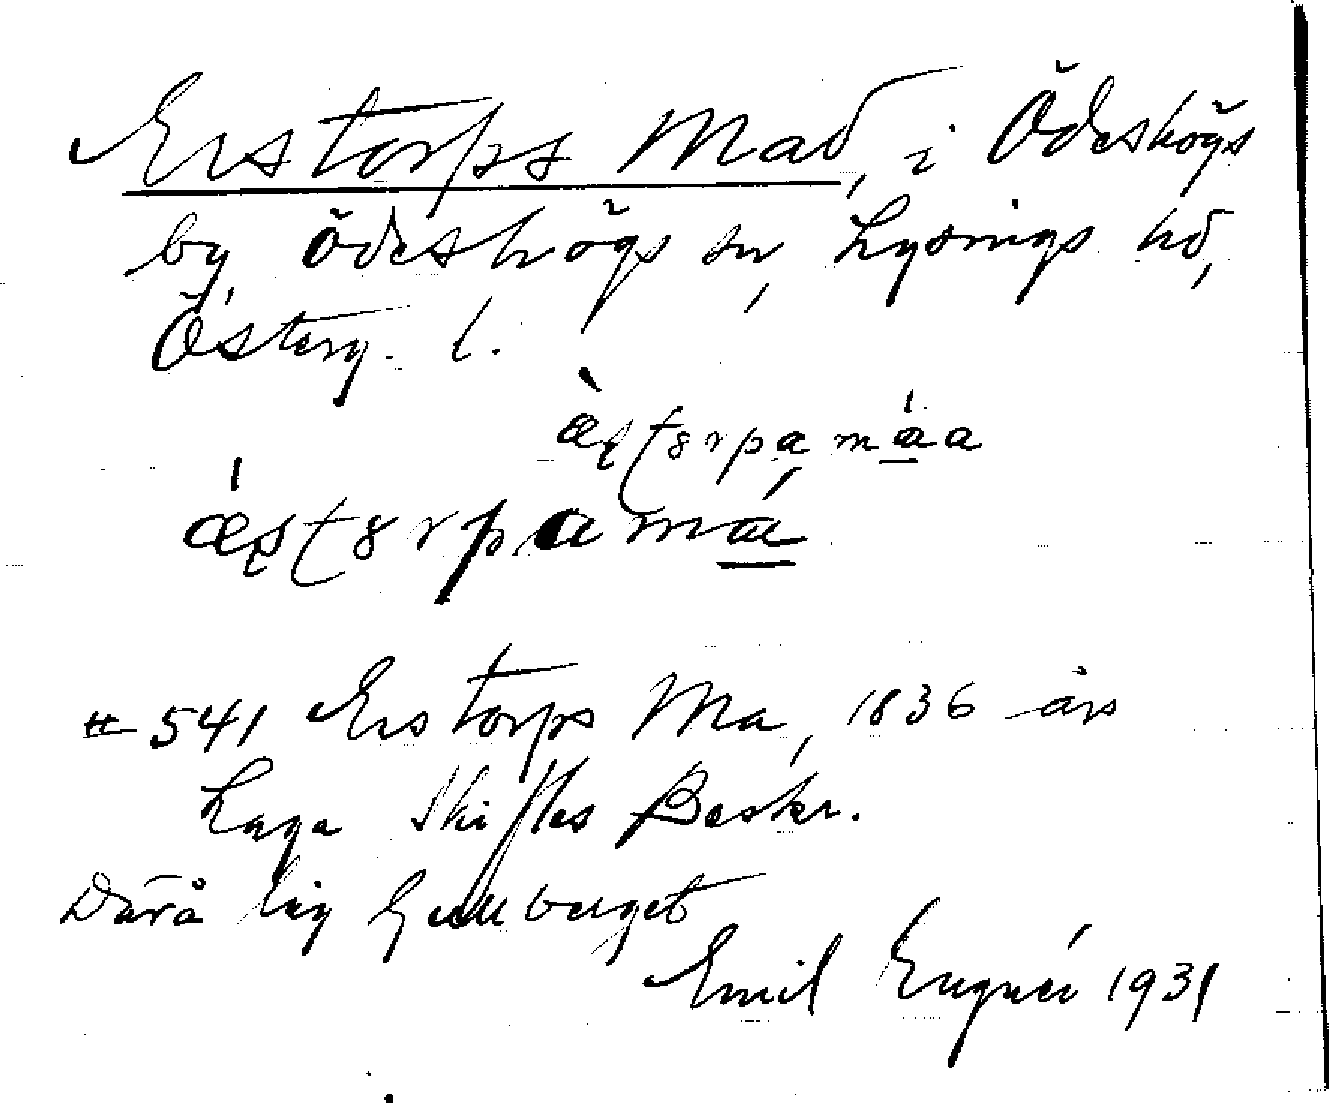 Erstorps Mad, i Ödeshögs
by Ödeshögs sn, Lysings hd,
Österg. l.
æ̀sto̵rpa máa
ǽsto̵rpa má
# 541 Erstorps Ma, 1836 års
Laga Skiftes Beskr.
Därå lig Gullberget
Emil Engnér 1931